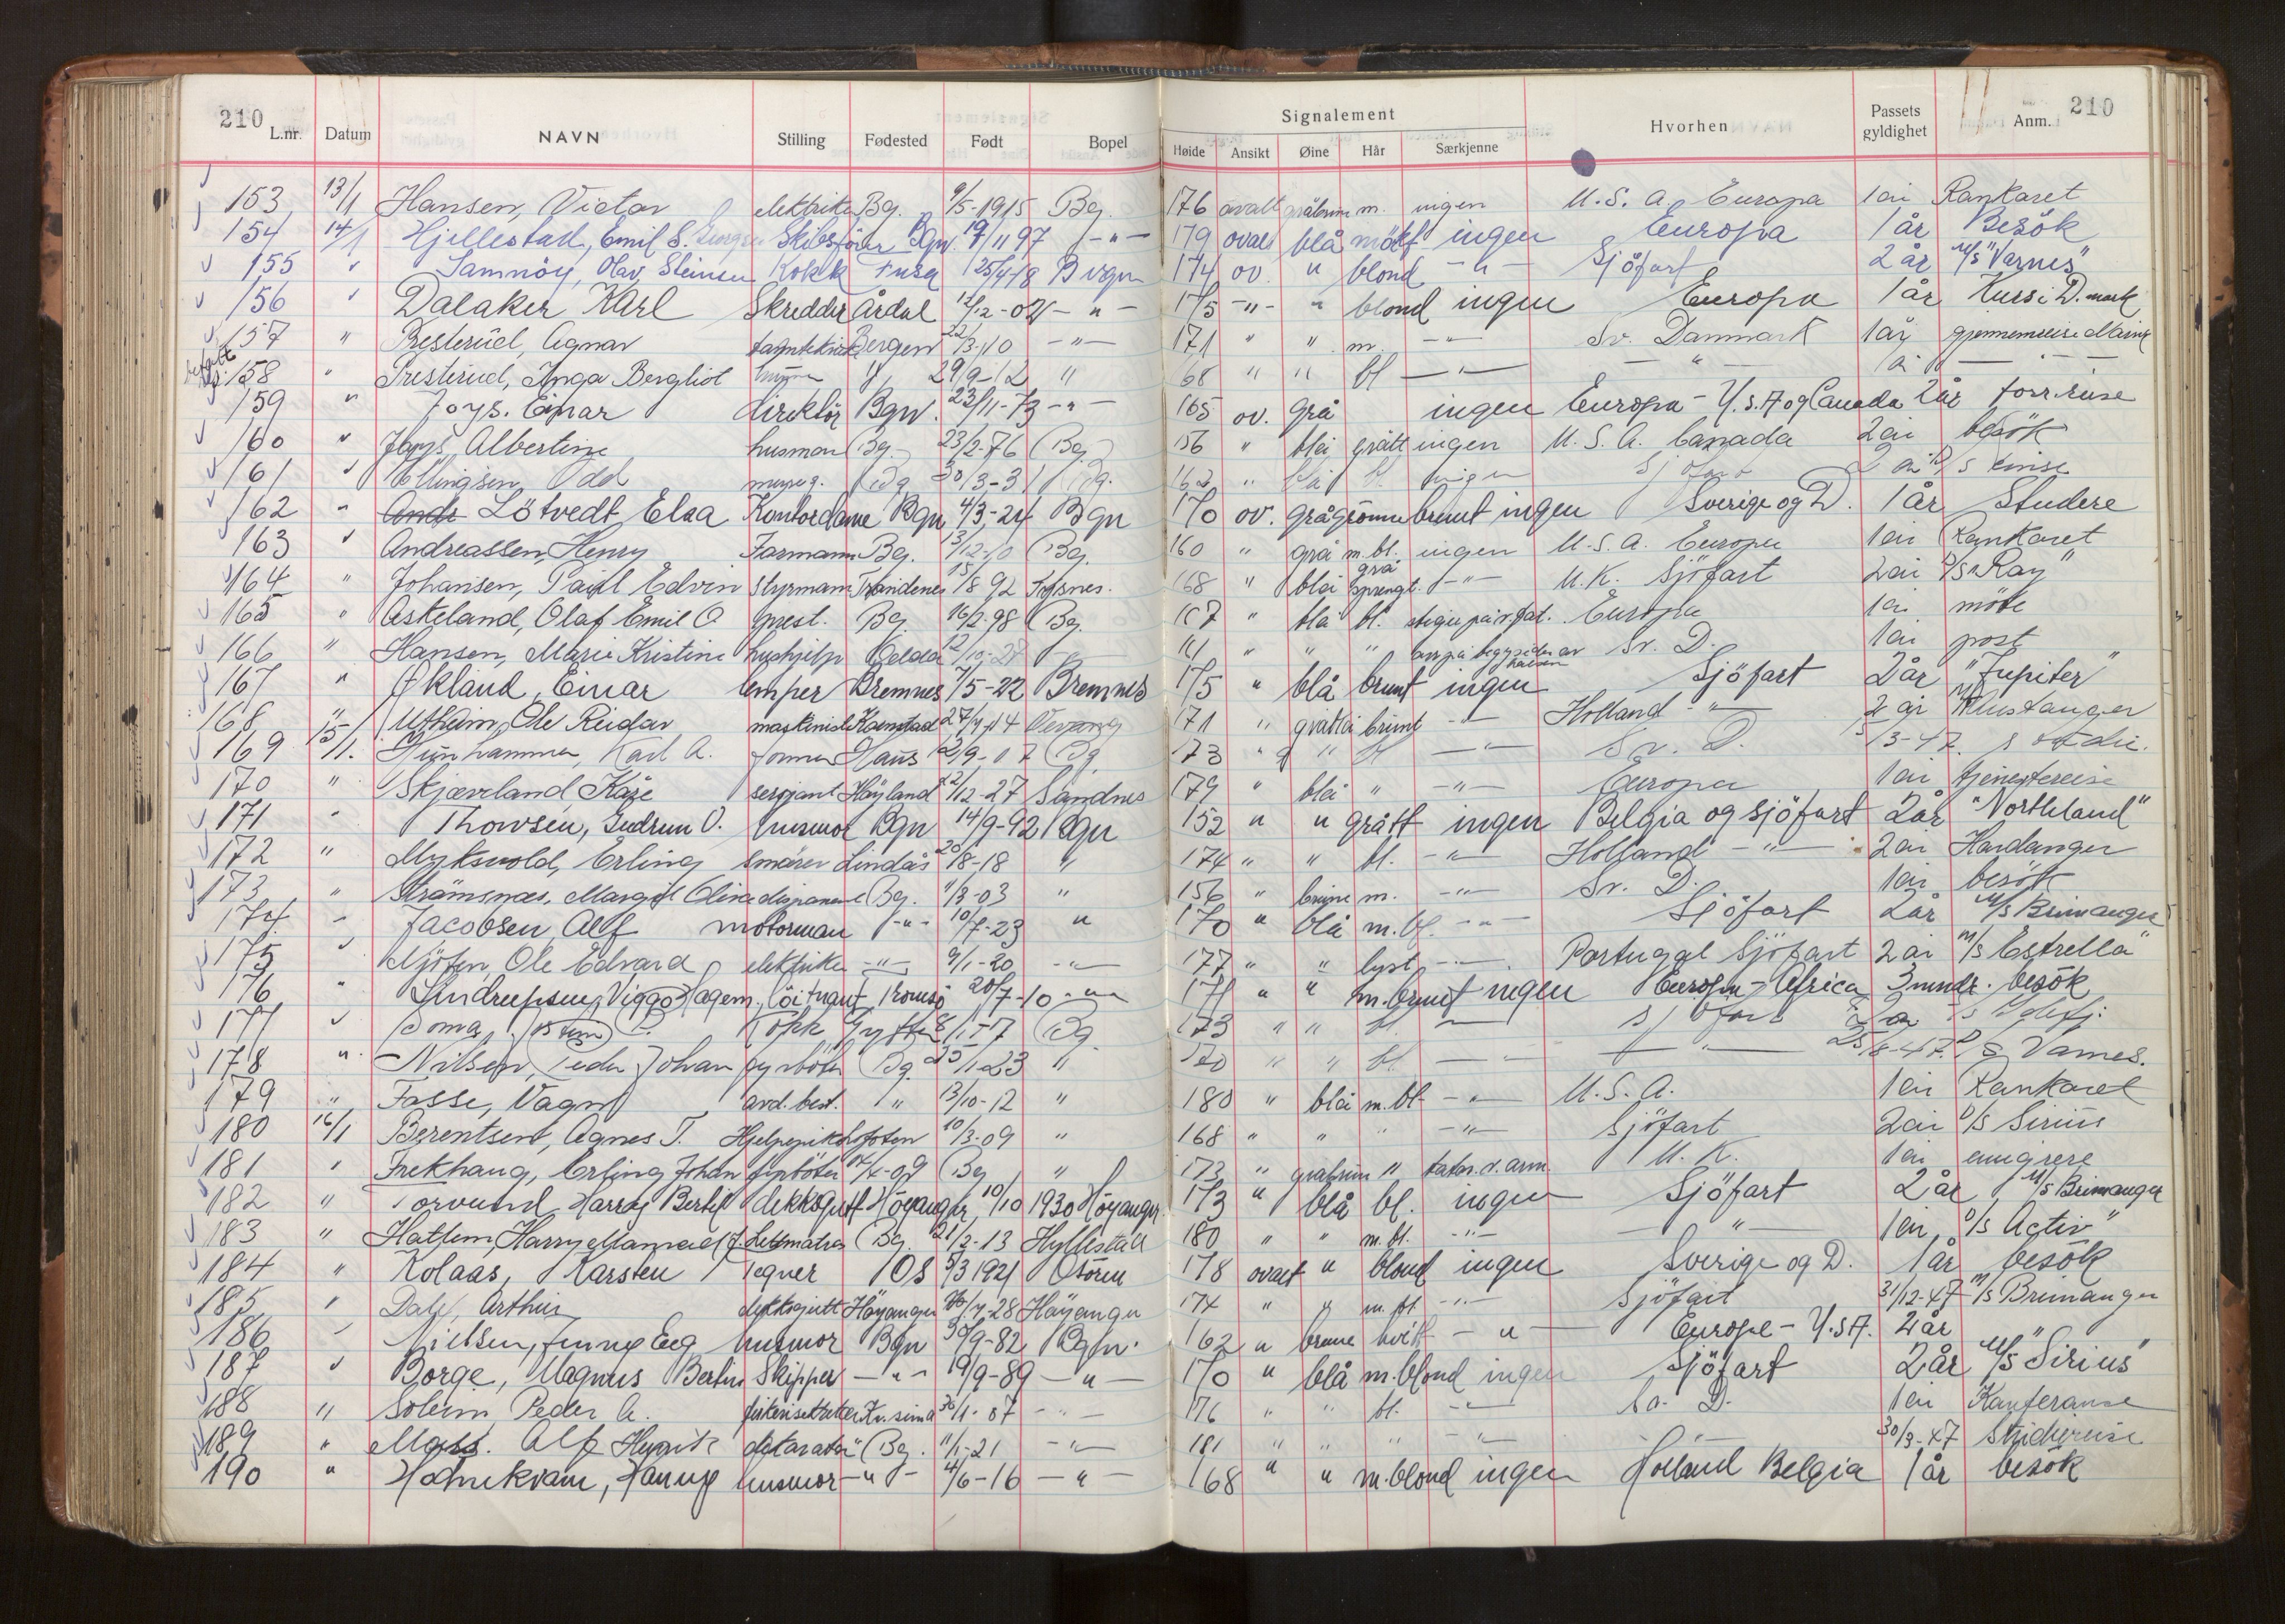 210
210
L.nr. Datum NAVN Stilling Fødested Født Bopel Signalement Høide Ansikt Øine Hår Særkjenne Hvorhen Passets gyldighet Anm.
153 13/1 Hansen, Victor elektriker Bg. 9/5-1915 Bg. 176 ovalt gråbrune m. ingen U.S.A. Europa 1 år Rankaret
154 14/1 Hjellestad, Emil S. Skibsfører Bgn. 19/11 97 -"- 179 ovalt blå mörkt ingen Europa 1 år Besök
155 " Samnöy, Olav Steinsen Kokk Fusa 25/4-18 Bergen 174 ov. " blond -"- Sjöfart 2 år M/S "Varnes"
156 " Dalaker Karl Skredder Årdal 12/12-02 -"- 175 -"- " blond ingen Europa 1 år Kurs i D.mark
157 " Presterud, Agnar Bergen 22/3-10 -"- 171 " " m. -"- Sv. Danmark 1 år gjennemreise
158 " Presterud, Inga Bergliot " 29/9-12 " 168 " " bl -"- -"-
159 " Joys. Einar direktör Bgn. 23/11-73 -"- 165 ov. grå ingen Europa - U.S.A og Canada 2 år forr.reise
160 " Joys, Albertine husmor Bg. 23/2-76 Bg. 156 " blå grått ingen U.S.A. Canada 2 år besök
161 " Ellingsen Odd Bg 30/3-31 Bg. 162 " blå ingen Sjöfart 2 år
162 " Andr Lötvedt Elsa Kontordame Bgn 4/3-24 Bgn 170 ov. grågrönne brunt ingen Sverige og D. 1 år Studere
163 " Andreassen, Henry Farmann Bg. 3/12-10 Bg. 160 " grå m.bl. ingen U.S.A. Europa 1 år Rankaret
164 " Johansen, Paul Edvin Styrmann Trondenes 15/8 92 168 " blå grå sprengt. -"- U.K. Sjöfart 2 år D/S "Ray"
165 " Askeland, Olaf Emil O prest. Bg. 16/2-98 Bg. 167 " blå bl. Europa 1 år möte
166 " Hansen, Marie Kristine hushjelp 12/10-28 161 " " " arr på begge sider av halsen Sv. D. 1 år post
167 " Økland, Einar lemper Bremnes 7/5-22 Bremnes 175 " blå brunt ingen Sjöfart 2 år "Jupiter"
168 " Utheim, Ole Reidar maskinist 27/4-14 171 " gråblå brunt -"- Holland -"- 2 år
169 15/1. Karl A. former Haus 12/9-07 Bg. 173 " " bl -"- Sv. D.
170 " Skjæveland, Kåre sersjant Høyland 22/12-27 Sandnes 179 " blå " -"- Europa 1 år tjenestereise
171 " Thowsen, Gudrun O. husmor Bgn 14/9-92 Bgn 152 " " grått ingen Belgia og sjöfart 2 år "Northland"
172 " Myksvold, Erling smører Lindås 20/8-18 " 174 " " bl. -"- Holland -"- 2 år Hardanger
173 " Strømsnes, Margit Oline Bg. 1/3-03 " 156 " brune m. -"- Sv. D. 1 år besök
174 " Jacobsen, Alf motorman -"- 10/7-23 " 170 " blå m.bl. -"- Sjöfart 2 år M/S Brimanger
175 " Njöten, Ole Edvard elektriker -"- 9/1-20 -"- 177 " " lyst -"- Portugal Sjöfart 2 år M/S Estrella"
176 " Lindrupsen, Viggo Hagem. löitnant Tromsö 20/7-10 -"- 171 " " m.brunt ingen Europa - Africa 3 mndr. besök
177 " Soma, Kokk Bg. 173 " " bl -"- Sjöfart
178 " Nilsen, Peder Johan fyrböter Bg. 25/1-23 " 170 " " bl -"- -"- 25/8-47. D/S Varnes.
179 " Fasse, Vagn avd.best. " 13/10-12 " 180 " blå m.bl -"- U.S.A. 1 år Rankaret
180 16/1 Berentsen, Agnes T. Lofoten 10/3-09 " 168 " " " -"- Sjöfart 2 år D/S Sirius
181 " Frekhaug, Erling Johan fyrböter 14/4-09 Bg " 173 " gråbrun " tatov. v. arm. U.K. 1 år emigrere
182 " Torvund, Harry Bertil dekksgutt Höyanger 10/10 1930 Höyanger. 173 " blå bl. ingen Sjöfart 2 år M/S Brimanger
183 " Hatlem, Harry Lettmatros Bg. 21/2-13 Hyllestad 180 " " m.bl. -"- -"- 1 år D/S Activ"
184 " Kolaas, Karsten Tegner Os 5/3 1921 Osören 178 ovalt " blond ingen Sverige og D. 1 år besök
185 " Dale, Arthur dekksgutt Høyanger 26/4-28 Høyanger 174 " " m.bl. -"- Sjöfart 31/12-47 M/S Brimanger
186 " Nielsen, Jenny Eeg husmor Bgn 30/9-82 Bgn. 162 " brune hvitt -"- Europa - U.S.A. 2 år "
187 " Borge, Magnus Bertin Skipper -"- 19/9-89 -"- 170 " blå m.blond ingen Sjöfart 2 år M/S "Sirius"
188 " Soleim, Peder A. 30/1-07 -"- 176 " " bl. -"- Sv. D. 1 år Konferanse
189 " Alf dekoratør Bg. 11/1-21 -"- 181 " " " -"- -"- 30/3-47 Studiereise
190 " Hodnekvam, Hanny husmor -"- 4/6-16 -"- 168 " " m.blond ingen Holland Belgia 1 år besök